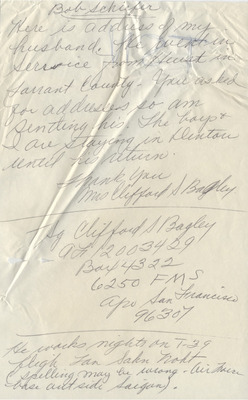 Bob Schiefer
Here is address of my
husband. He went in
Service from Hurst in
Tarrant County. You asked
for addresses so am
sending his. The boys &
I are staying in Denton
until his return.
Thank You
Mrs Clifford S Bagley
Clifford S Bagley
AF 2003429
Box 4322
6250 FMS
Apo San Francisco
96307
He works nights on T-39
Tan Sahn
spelling may be wrong - Air
base outside Saigon).